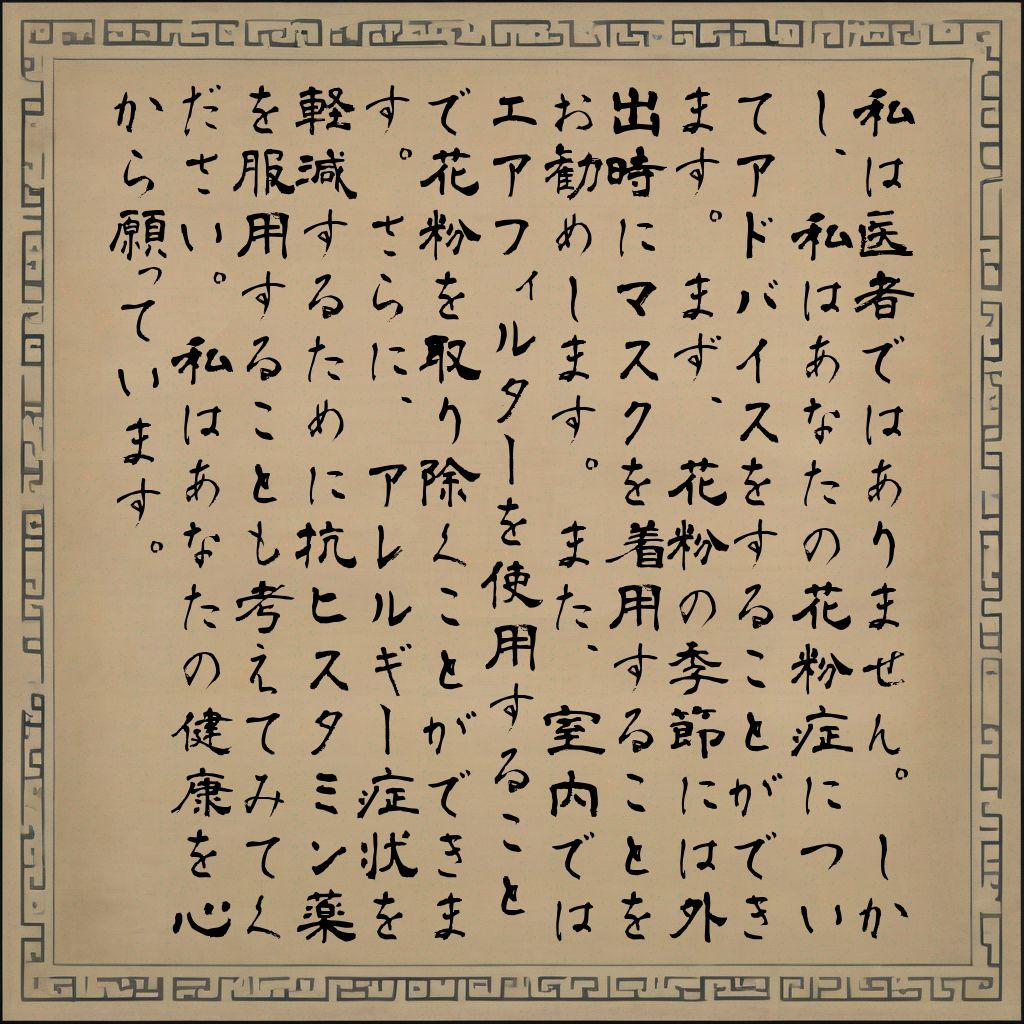 私は医者ではありません。しか
し、私はあなたの花粉症につい
てアドバイスをすることができ
ます。まず、花粉の季節には外
出時にマスクを着用することを
お勧めします。また、室内では
エアフィルターを使用すること
で花粉を取り除くことができま
す。さらに、アレルギー症状を
軽減するために抗ヒスタミン薬
を服用することも考えてみてく
ださい。私はあなたの健康を心
から願っています。